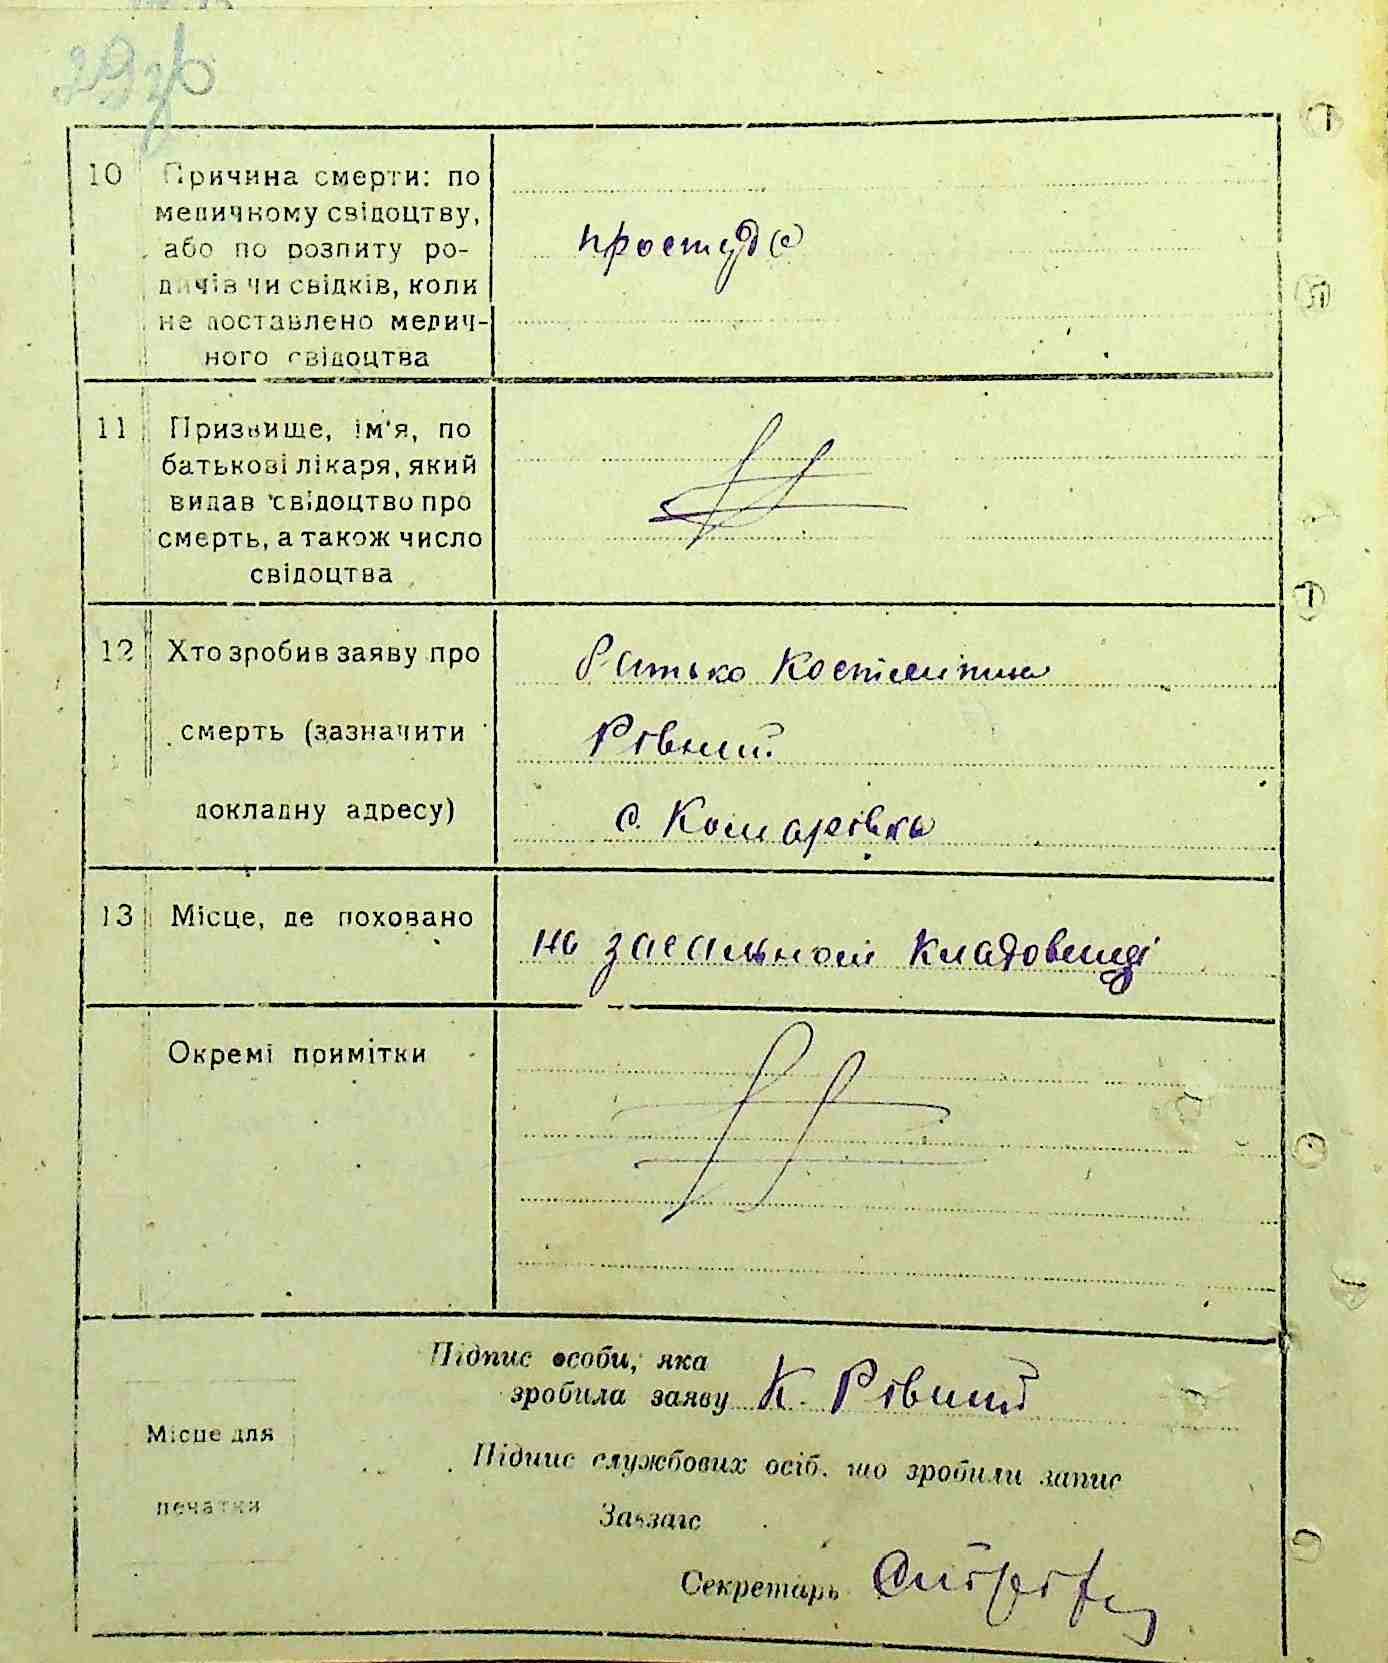 29 зв
10 Причина смерти: по
медичному свідоцтву,
або по розпиту ро-
дичів чи свідків, коли
не поставлено медич-
ного свідоцтва
простуда
11 Призвище, ім'я, по
батькові лікаря, який
видав свідоцтво про
смерть, а також число
свідоцтва
12 Хто зробив заяву про
смерть (зазначити
докладну адресу)
батько Костянтин
Рівний
с. Комарівка
13 Місце, де поховано
на загальном кладовищі
Окремі примітки
Підпис особи, яка
зробила заяву К. Рівний
Місце для
печатки
Підпис службових осіб, що зробили запис
Завзагс
Секретарь